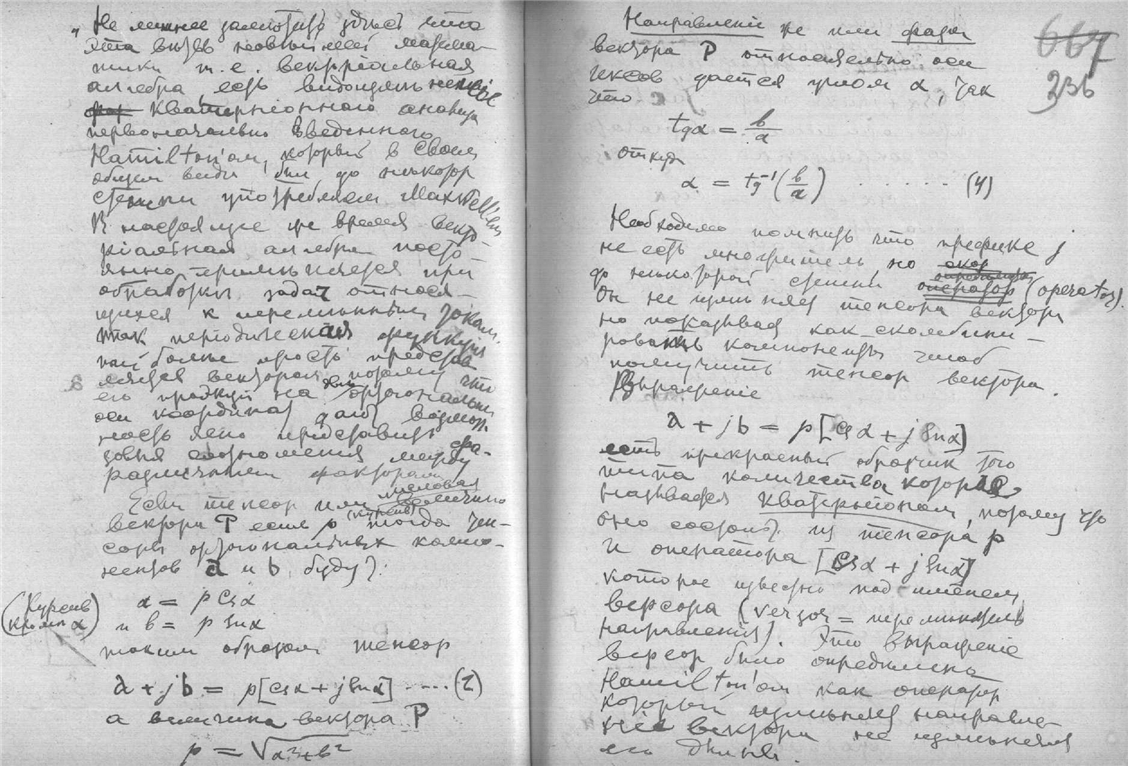 „ Не лишнее заметить здесь что
эта вызв новый математики
т. е. векторіальная
алгебра есть видоизмененіе
кватерніоннаго анализа
первоначально введеннаго
Hamilton'ом, который в своем
общем виде был до некотор
степени употребляем Максвеллем
В настоящее же время векто-
ріальная алгебра посто-
янно применяется при
обработки задач относя-
щихся к переменным токам
так періодическая функція
наиболее просто представ
ляется вектором потому что
его проэкціи на две ортогональныя
оси координат дают возмож
ность ясно представить фа-
зовыя соотношения между
различными факторами
Если тенсор или числовая величина
вектора P если p (курсив) тогда тен-
соры ортогональных компо-
нентов a и b будут:
(Курсив
кроме α)
a = p cs α
и b = p sn α
таким образом тенсор
a + jb = p[cs α + j sn α] ..... (2)
а величина вектора P
p = √a²+b²
667
236
Направленіе же или фаза
вектора P относительно оси
иксов дается углом α, так
что
tg α = b/a
откуда
α = tg⁻¹(b/a) ...... (4)
Необходимо помнить что префикс j
не есть множитель но скор
до некоторой степени оператор (operator).
Он не изменяет тенсора вектора
но показывает как скомбини-
ровать компоненты чтоб
получить тенсор вектора.
Выражение
a + jb = p[cs α + j sn α]
есть прекрасный образчик того
типа количества которое
называется кватерніоном, потому что
оно состоит из тенсора p
и оператора [cs α + j sn α]
которое известно под именем
версора (versor = переменитель
направленія). Это выражение
версор было определено
Hamilton'ом как оператор
который изменяет направле-
ніе вектора не изменяя
его длины.